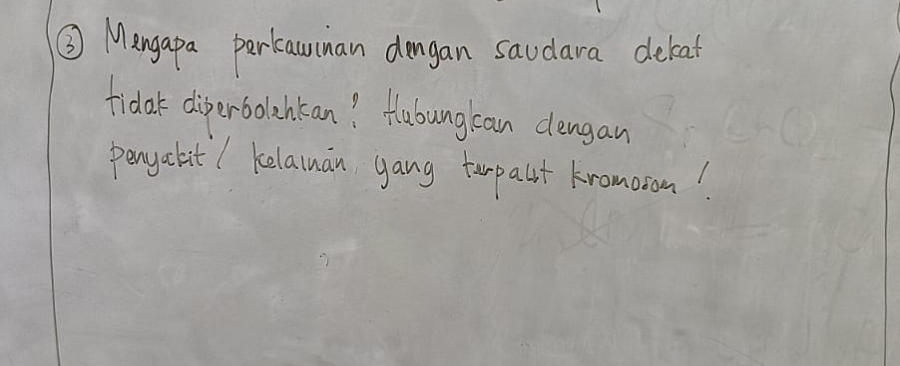 ③ Mengapa perkawinan dengan saudara dekat
tidak diperbolehkan? Hubungkan dengan
penyakit / kelainan yang terpaut kromosom!